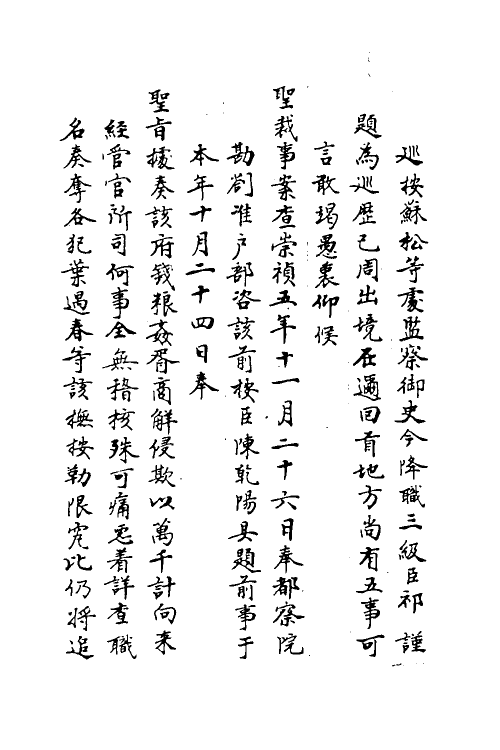 巡按蘇松等處監察御史今降職三級臣祁 謹
題為巡歷已周出境在邇回首地方尚有五事可
言敢竭愚衷仰候
聖裁事案查崇禎五年十一月二十六日奉都察院
勘劄准戶部咨該前按臣陳乾陽具題前事于
本年十月二十四日奉
聖旨據奏該府錢粮姦胥商解侵欺以萬千計向來
經管官所司何事全無稽核殊可痛恶着詳查職
名奏奪各犯葉遇春等該撫按勒限究比仍將追